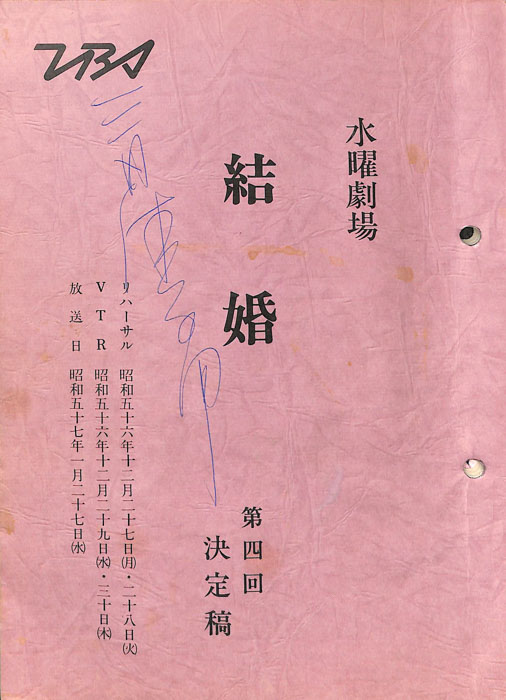 TBS
水曜劇場
結婚
第四回
決定稿
リハーサル 昭和五十六年十二月二十七日(月)・二十八日(火)
VTR 昭和五十六年十二月二十九日(水)・三十日(木)
放送日 昭和五十七年一月二十七日(水)